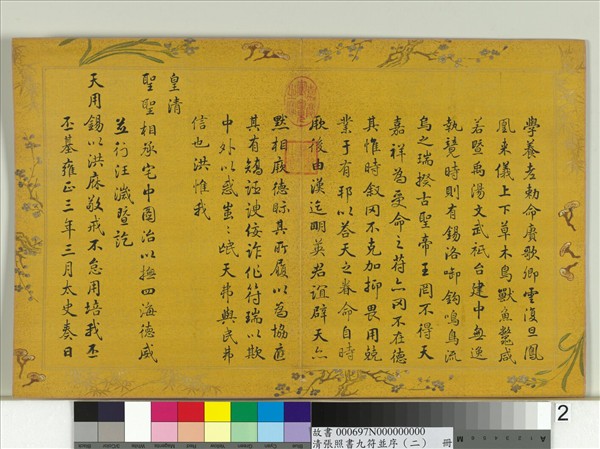 勅命賡歌卿雲復旦鳳
凰來儀上下草木鳥獸魚鱉咸
若暨禹湯文武祗台建中無逸
執競時則有錫洛啣鉤鳴鳥流
烏之瑞揆古聖帝王罔不得天
嘉祥為受命之符亦罔不在德
其惟時叙罔不克加抑畏用兢
業于有邦以荅天之眷命自時
厥後由漢迄明英君誼辟天亦
黙相厥德眎其所履以為協應
其有矯誣諛佞詐作符瑞以欺
中外以惑蚩〻氓天弗與民弗
信也洪惟我
皇清
聖聖相承宅中圖治以撫四海德威
並行汪濊暨訖
天用錫以洪庥敬戒不怠用培我丕
丕基雍正三年三月太史奏日
2
故書 000697N000000000
清張照書九符並序（二） 冊